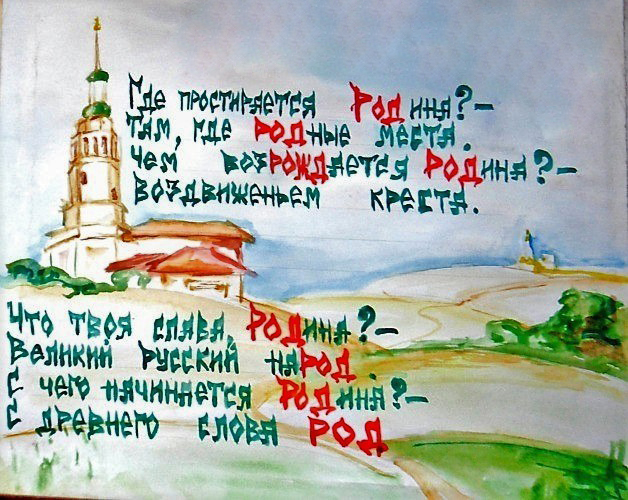 Где простирается Родина?–
Там, где родные места.
Чем возрождается Родина?–
Воздвиженьем креста.
Что твоя слава, Родина?–
Великий русский народ.
С чего начинается Родина?–
С древнего слова РОД